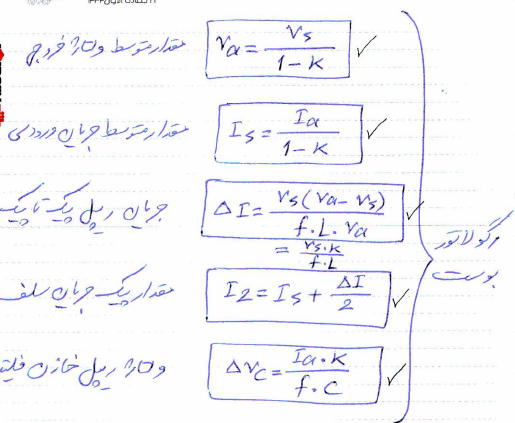 مقدار متوسط ولتاژ خروجی Va = Vs / (1 - K) ✓
مقدار متوسط جریان ورودی Is = Ia / (1 - K) ✓
جریان ریپل پیک تا پیک ΔI = Vs(Va - Vs) / (f.L.Va) ✓
= Vs.K / (f.L)
مقدار پیک جریان سلف I2 = Is + ΔI / 2 ✓
ولتاژ ریپل خازن ΔVc = Ia.K / (f.C) ✓
رگولاتور
بوست